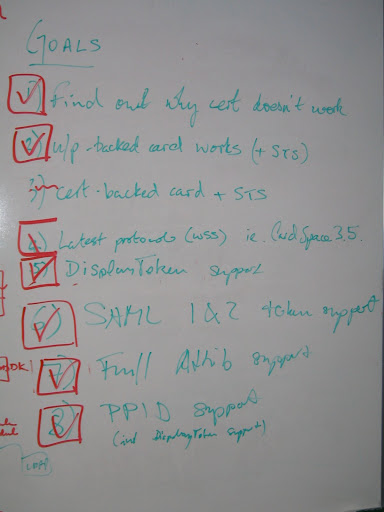 GOALS
1) Find out why cert doesn't work
2) u/p-backed card works (+ STS)
3) cert-backed card + STS
4) Latest protocols (WSS) ie. CardSpace 3.5.
5) DisplayToken support
6) SAML 1 & 2 token support
7) Full Attrib support
8) PPID support
(incl DisplayToken support)
LDAP